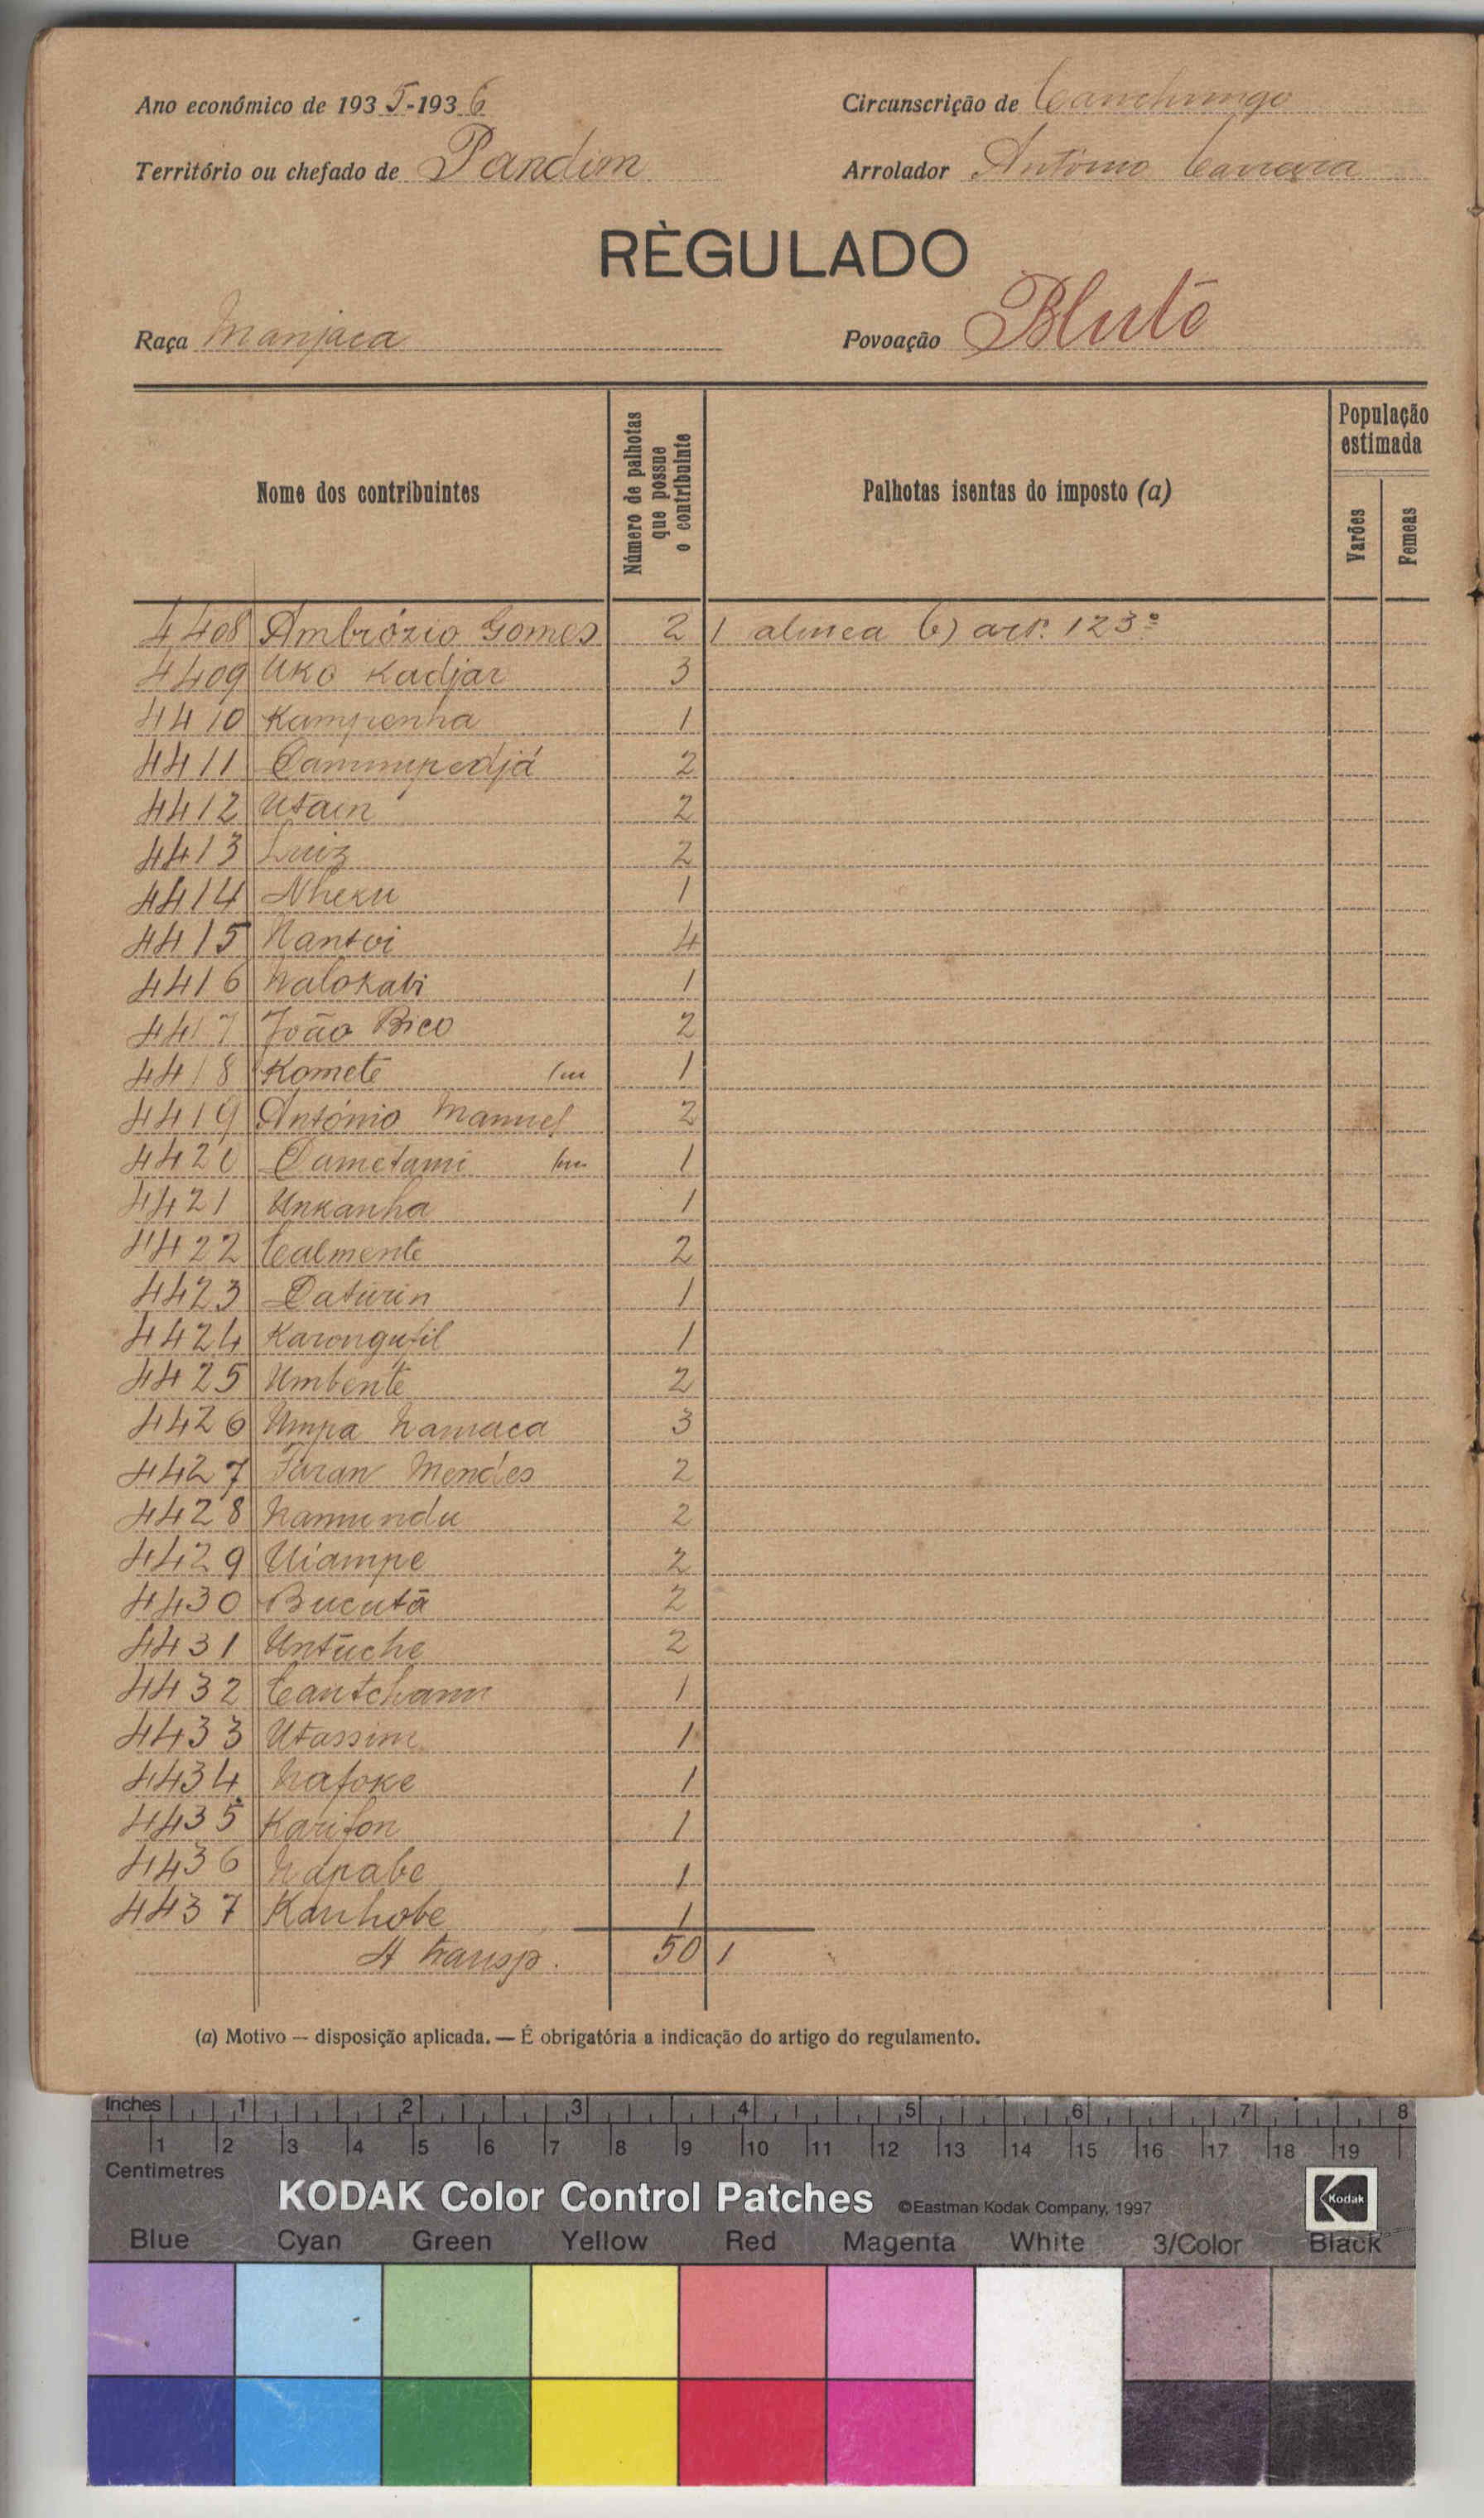 Ano económico de 1935-1936
Circunscrição de Canchungo
Território ou chefado de Pandim
Arrolador António Carreira
RÈGULADO
Raça Manjaca
Povoação Bluté
Nome dos contribuintes
Número de palhotas que possue o contribuinte
Palhotas isentas do imposto (a)
População estimada
Varões
Femeas
4408 Ambrózio Gomes 2 1 alinea b) art.º 123º
4409 Uko Kadjar 3
4410 Kampenha 1
4411 2
4412 Utain 2
4413 Luiz 2
4414 Nheku 1
4415 Nantoi 4
4416 Nalokabi 1
4417 João Bico 2
4418 Komete 1
4419 António Manuel 2
4420 Dametami 1
4421 Unkanha 1
4422 Calmente 2
4423 Daturin 1
4424 Karongutil 1
4425 Umbente 2
4426 Umpa Namaca 3
4427 Faran Mendes 2
4428 Namundu 2
4429 Uiampe 2
4430 Bucutā 2
4431 Untuche 2
4432 Cautchann 1
4433 Utassim 1
4434 Nafoke 1
4435 Karifon 1
4436 Napabe 1
4437 Kanhobe 1
A transp. 50 1
(a) Motivo — disposição aplicada. — É obrigatória a indicação do artigo do regulamento.
Inches 1 2 3 4 5 6 7 8
1 2 3 4 5 6 7 8 9 10 11 12 13 14 15 16 17 18 19
Centimetres
KODAK Color Control Patches ©Eastman Kodak Company, 1997 Kodak
Blue Cyan Green Yellow Red Magenta White 3/Color Black